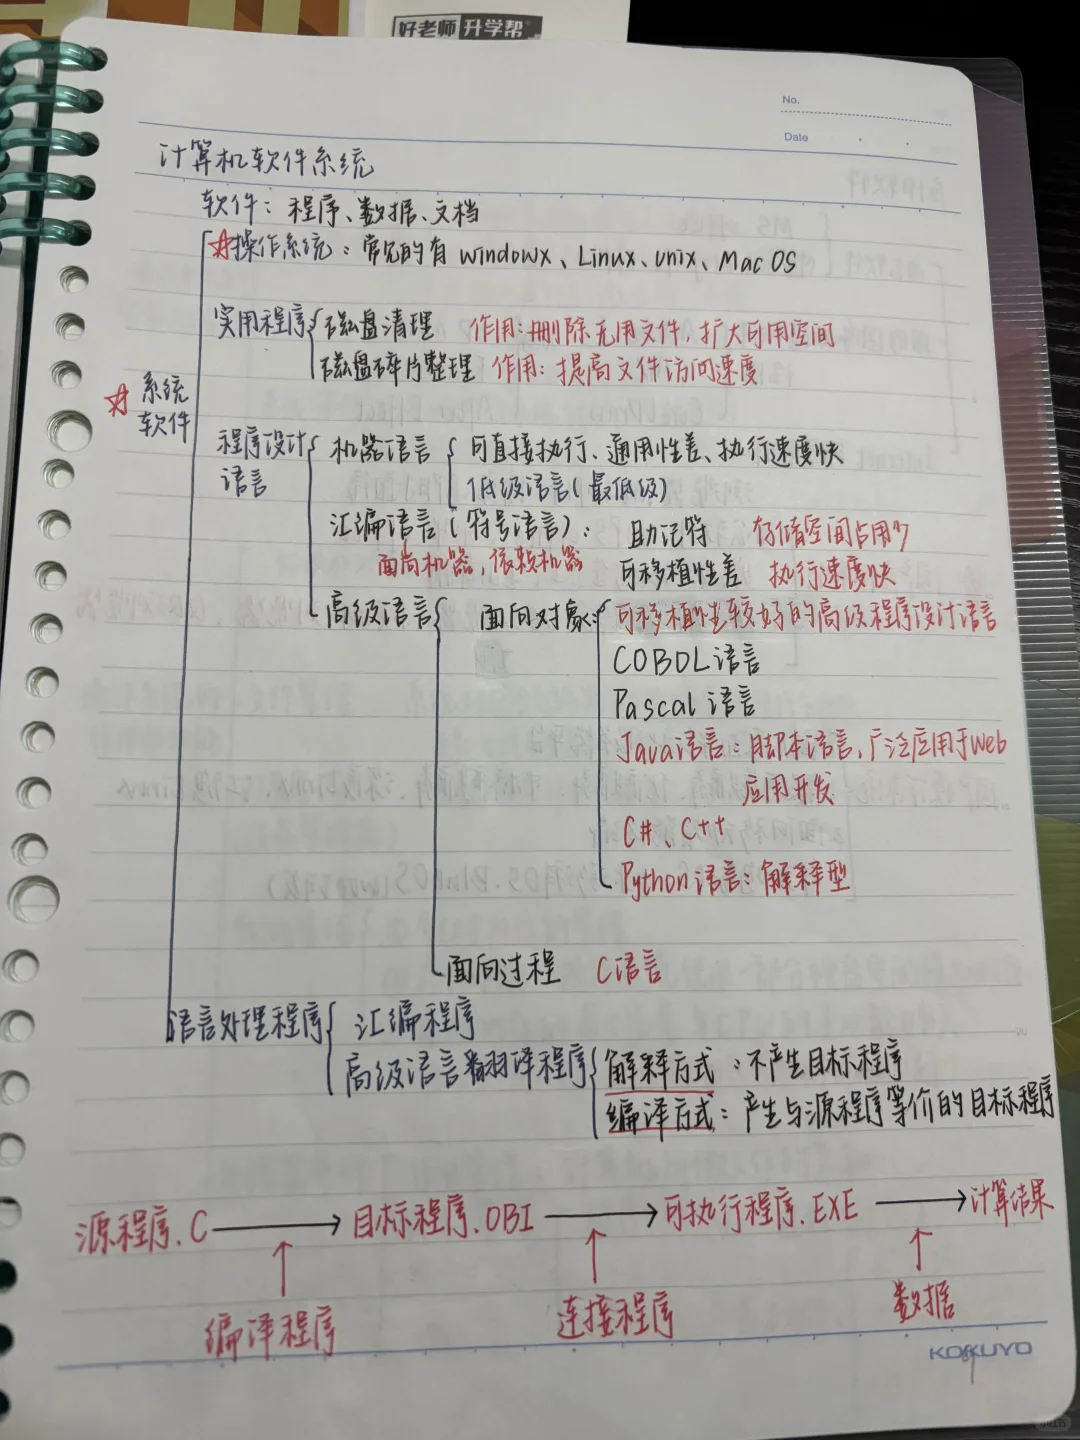 好老师 升学帮
No.
Date
计算机软件系统
软件：程序、数据、文档
☆操作系统：常见的有 windowx、Linux、unix、Mac OS
实用程序 磁盘清理 作用：删除无用文件，扩大可用空间
磁盘碎片整理 作用：提高文件访问速度
☆ 系统
软件
程序设计 机器语言 可直接执行、通用性差、执行速度快
语言 低级语言（最低级）
汇编语言（符号语言）： 助记符 存储空间占用少
面向机器，依赖机器 可移植性差 执行速度快
高级语言 面向对象： 可移植性较好的高级程序设计语言
COBOL 语言
Pascal 语言
Java语言：脚本语言，广泛应用于Web
应用开发
C#、C++
Python语言：解释型
面向过程 C语言
语言处理程序 汇编程序
高级语言翻译程序 解释方式：不产生目标程序
编译方式：产生与源程序等价的目标程序
源程序.C → 目标程序.OBI → 可执行程序.EXE → 计算结果
↑ ↑ ↑
编译程序 连接程序 数据
KOKUYO